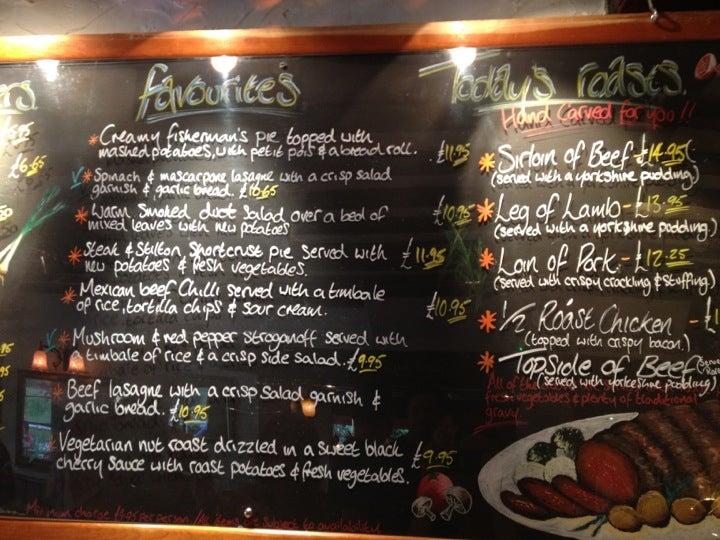 favourites
*Creamy fisherman's pie topped with
mashed potatoes, with petit pois & a bread roll. £11.95
*Spinach & mascarpone lasagne with a crisp salad
garnish & garlic bread. £10.65
*Warm smoked duck salad over a bed of
mixed leaves with new potatoes £10.95
*Steak & Stilton shortcrust pie served with
new potatoes & fresh vegetables. £11.95
*Mexican beef chilli served with a timbale
of rice, tortilla chips & sour cream. £10.95
*Mushroom & red pepper stroganoff served with
a timbale of rice & a crisp side salad. £9.95
*Beef lasagne with a crisp salad garnish &
garlic bread. £10.95
*Vegetarian nut roast drizzled in a sweet black
cherry sauce with roast potatoes & fresh vegetables. £9.95
Minimum charge per person / All items are subject to availability
£6.65
Today's roasts
Hand Carved for you!!
*Sirloin of Beef - £14.95
(served with a yorkshire pudding)
*Leg of Lamb - £13.95
(served with a yorkshire pudding.)
*Loin of Pork - £12.25
(served with crispy crackling & stuffing.)
*1/2 Roast Chicken - £1
(topped with crispy bacon.)
*Topside of Beef
(served with yorkshire pudding)
All of the
fresh vegetables & plenty of traditional
gravy.